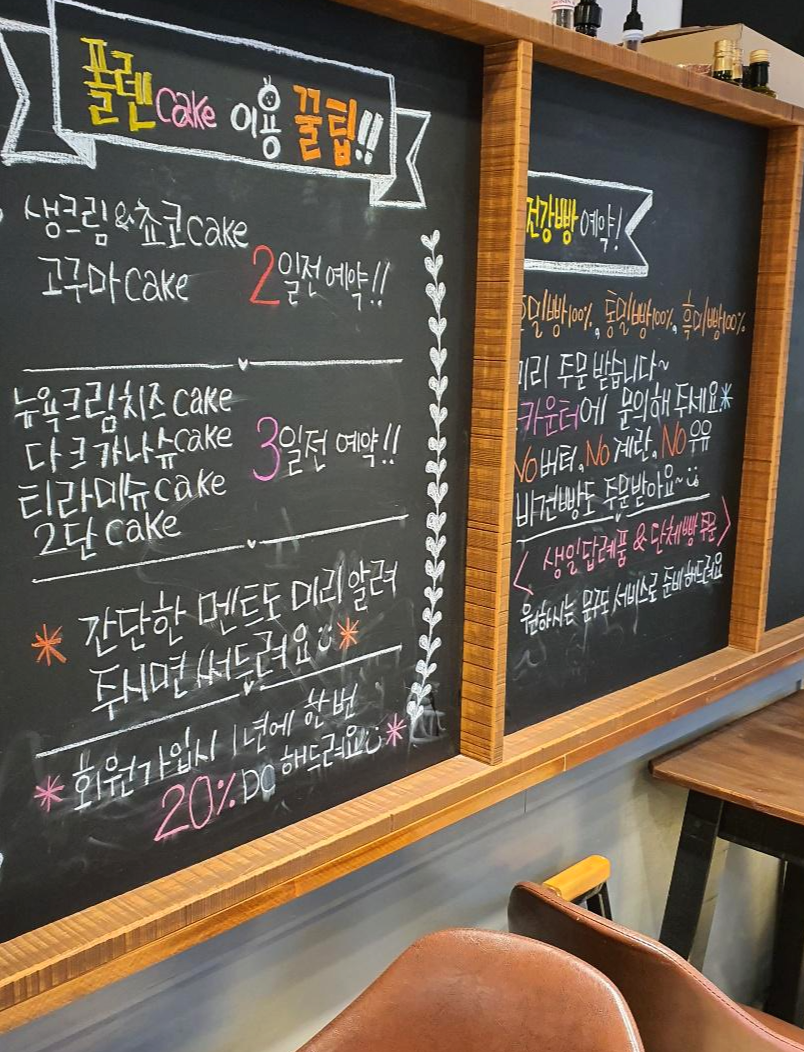 폴렌 cake 이용 꿀팁!!
생크림&쵸코cake
고구마cake
2일전 예약!!
뉴욕크림치즈 cake
다크가나슈cake
티라미슈cake
2단 cake
3일전 예약!!
* 간단한 멘트도 미리 알려
주시면 써드려요 *
* 회원가입시 1년에 한번
20% DC 해드려요 *
건강빵 예약!
호밀빵100%, 통밀빵100%, 흑미빵100%
미리 주문 받습니다~
카운터에 문의해 주세요*
No버터, No계란, No우유
비건빵도 주문받아요~
< 생일답례품 & 단체빵 주문 >
원하시는 문구도 서비스로 준비해드려요